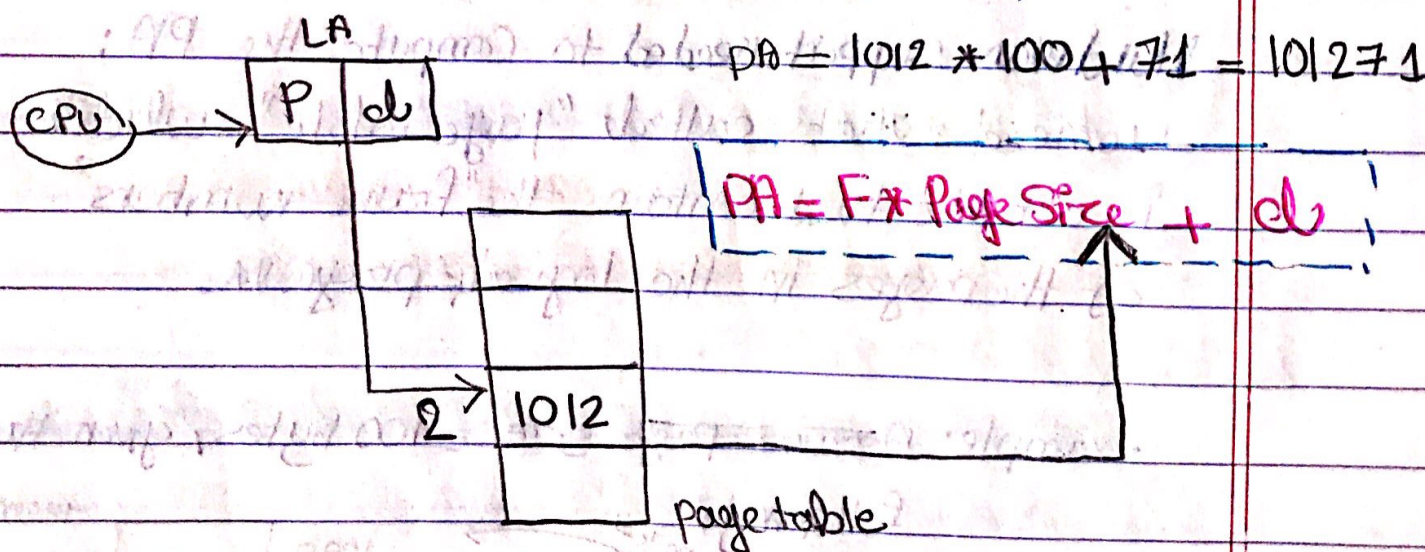 LA
PA = 1012 * 100 + 71 = 101271
CPU
P d
PA = F * Page Size + d
2
1012
page table